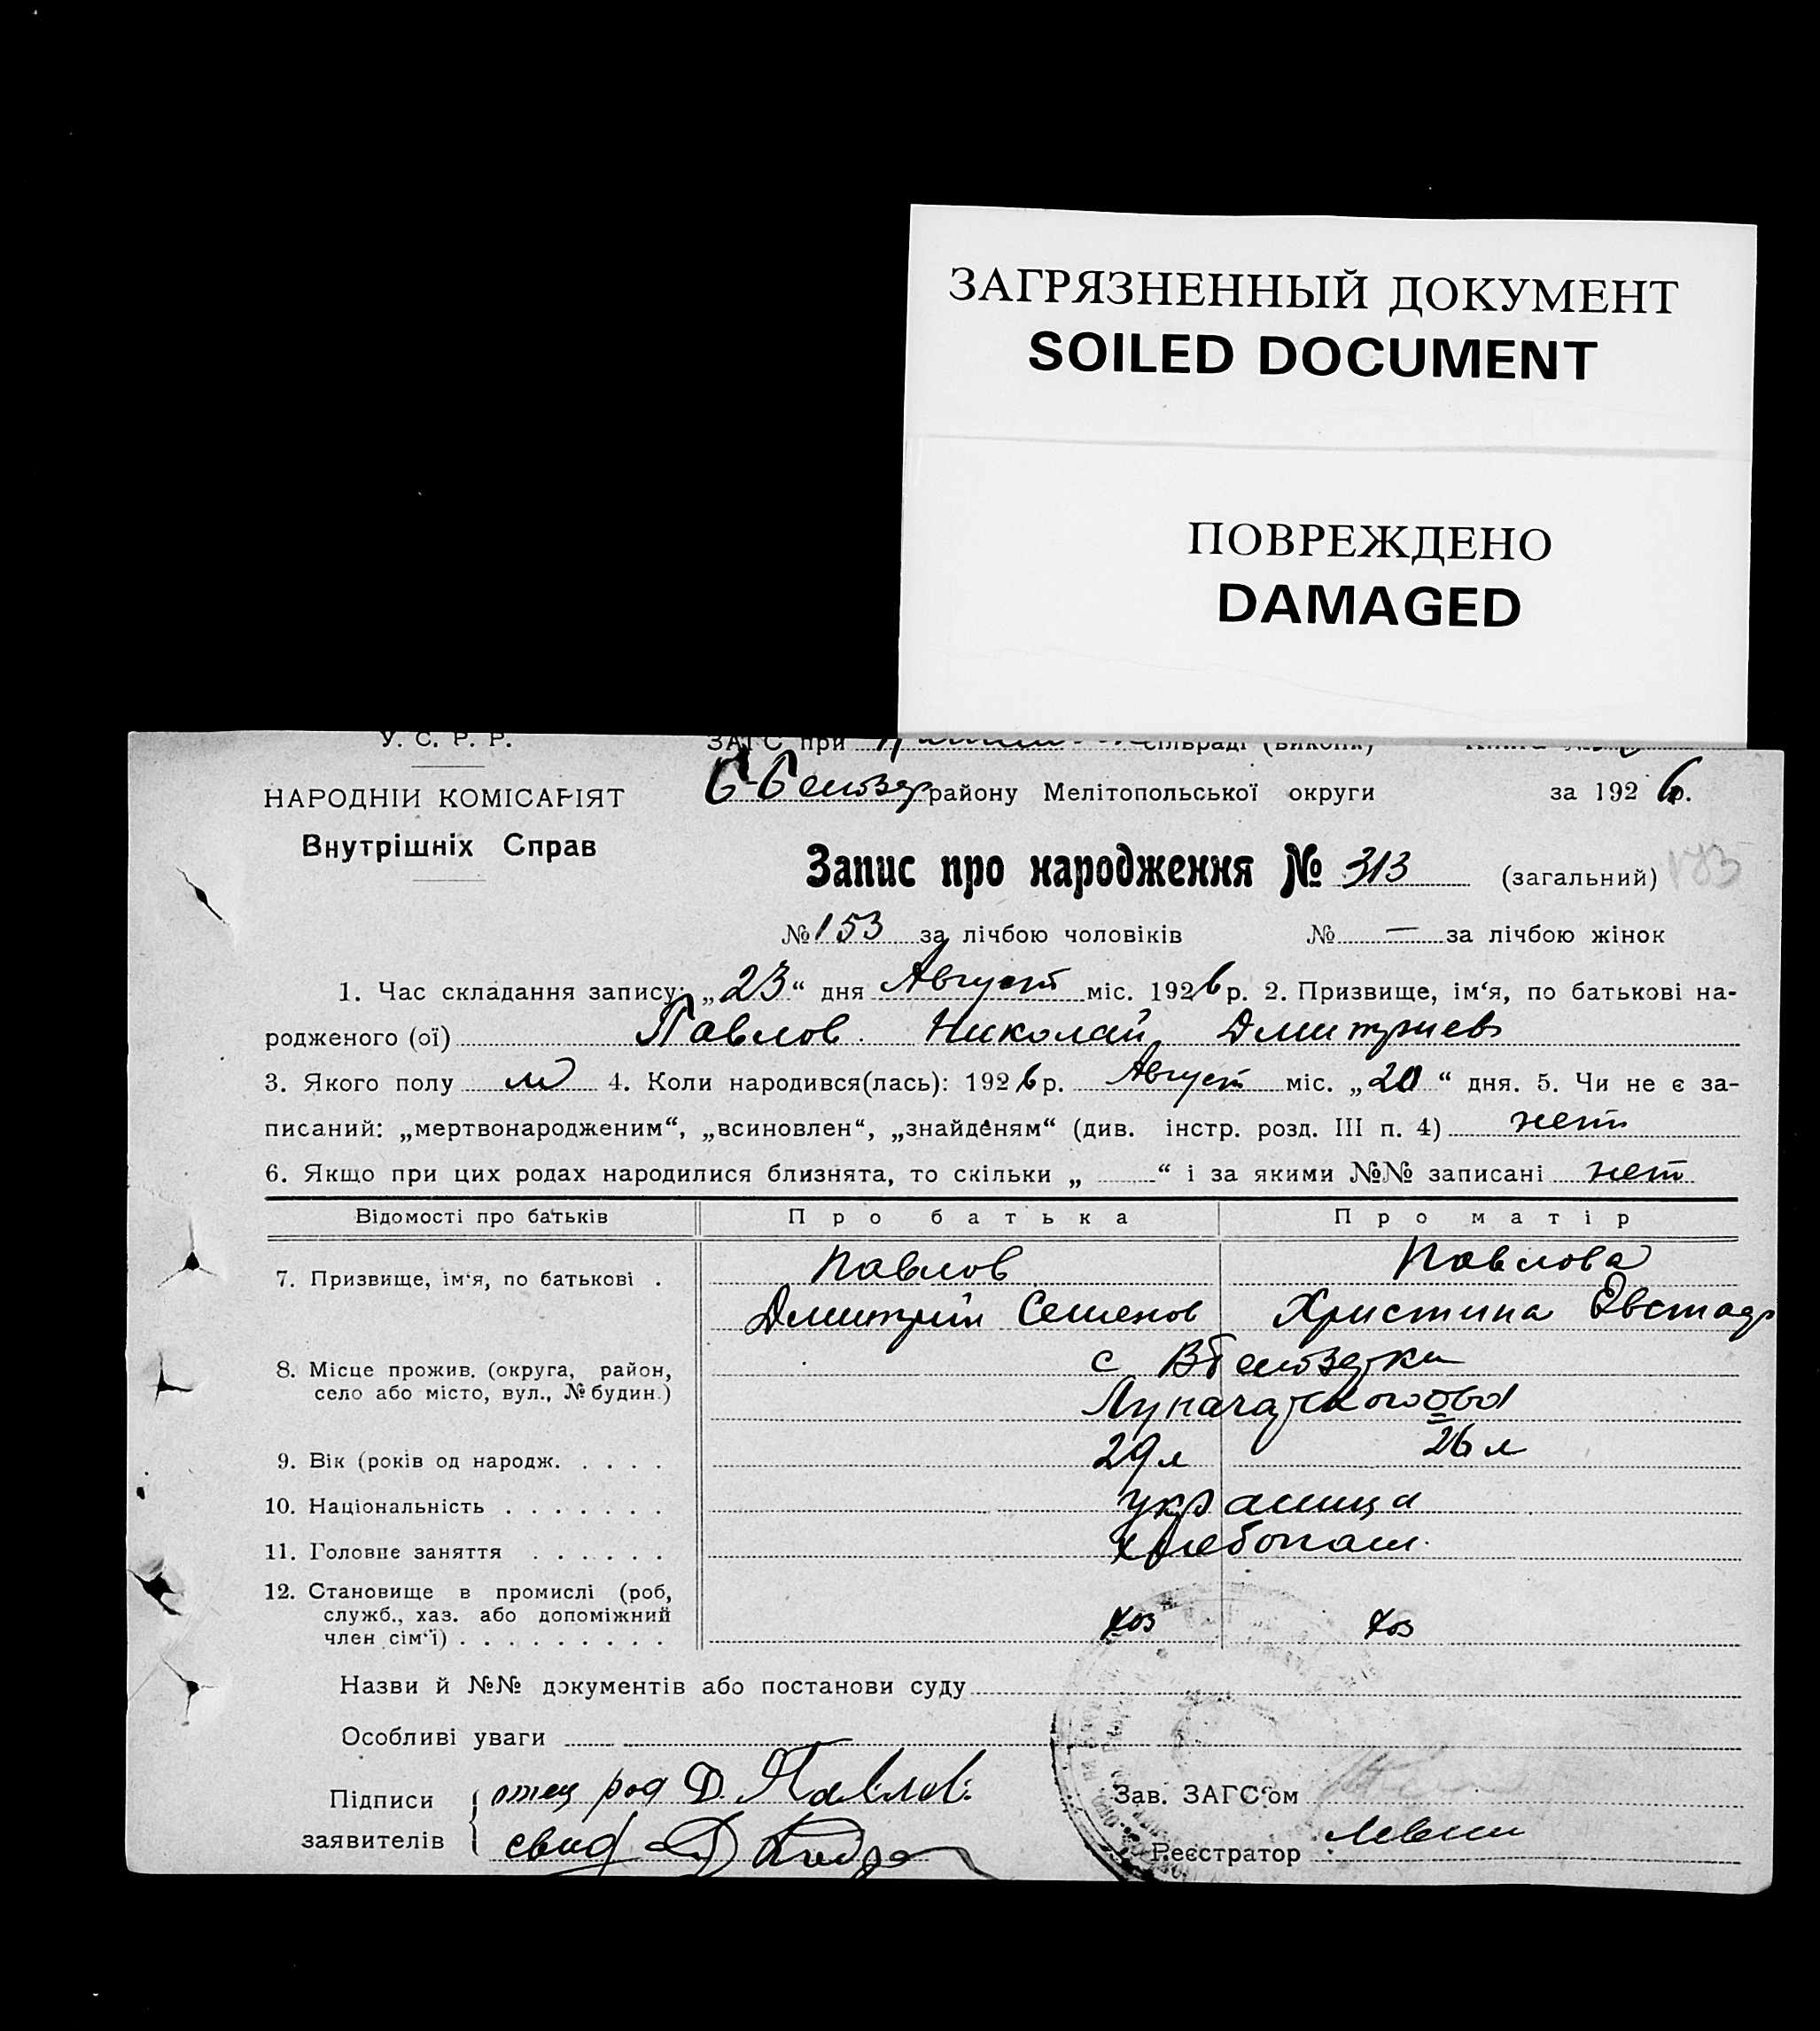 ЗАГРЯЗНЕННЫЙ ДОКУМЕНТ
SOILED DOCUMENT
ПОВРЕЖДЕНО
DAMAGED
У. С. Р. Р.
ЗАГС при сільраді (виконк)
району Мелітопольської округи за 1926р.
НАРОДНІЙ КОМІСАРІЯТ
Внутрішніх Справ
Запис про народження № 313 (загальний) 173
№ 153 за лічбою чоловіків № — за лічбою жінок
1. Час складання запису: „23“ дня Август міс. 1926р. 2. Призвище, ім‘я, по батькові на-
родженого (ої) Павлов Николай Дмитриев
3. Якого полу м 4. Коли народився(лась): 1926р. Август міс. „20“ дня. 5. Чи не є за-
писаний: „мертвонародженим“, „всиновлен“, „знайденям“ (див. інстр. розд. III п. 4) нет
6. Якщо при цих родах народилися близнята, то скільки „ “ і за якими №№ записані нет
Відомості про батьків Про батька Про матір
7. Призвище, ім‘я, по батькові . Павлов Павлова
Дмитрий Семенов Христина Евстаф
8. Місце прожив. (округа, район,
село або місто, вул., № будин.)
с
9. Вік (років од народж. . . . . 29 л 26 л
10. Національність . . . . . . .
11. Головне заняття . . . . . . хлебопаш.
12. Становище в промислі (роб,
служб., хаз. або допоміжний
член сім‘ї) . . . . . . . . . хоз хоз
Назви й №№ документів або постанови суду
Особливі уваги
Підписи отец Д. Павлов
заявителів свид
Зав. ЗАГС‘ом
Реєстратор